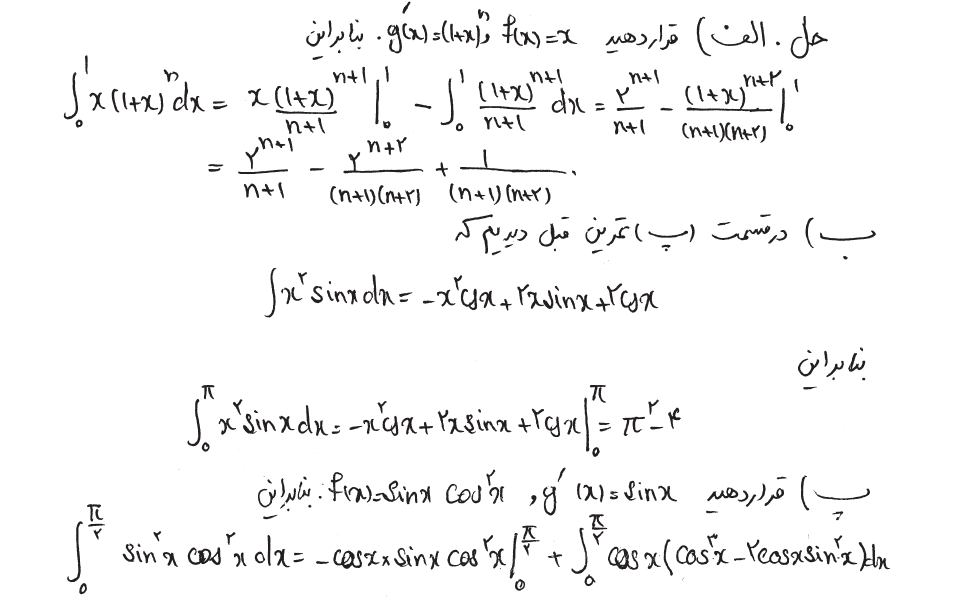 حل. الف) قرار دهید f(x)=x و g'(x)=(1+x)^n. بنابراین
∫_0^1 x(1+x)^n dx = x (1+x)^{n+1}/(n+1) |_0^1 - ∫_0^1 (1+x)^{n+1}/(n+1) dx = ۲^{n+1}/(n+1) - (1+x)^{n+۲}/((n+1)(n+۲)) |_0^1
= ۲^{n+1}/(n+1) - ۲^{n+۲}/((n+1)(n+۲)) + 1/((n+1)(n+۲)).
ب) در قسمت (پ) تمرین قبل دیدیم که
∫x^۲ sinx dx = -x^۲cosx + ۲x sinx + ۲cosx
بنابراین
∫_0^π x^۲ sinx dx = -x^۲cosx + ۲x sinx + ۲cosx |_0^π = π^۲ - ۴
پ) قرار دهید g'(x)=sinx , f(x)=sinx cos^۲x. بنابراین
∫_0^{π/۲} sin^۲x cos^۲x dx = -cosx × sinx cos^۲x |_0^{π/۲} + ∫_0^{π/۲} cosx (cos^۳x - ۲cosx sin^۲x) dx